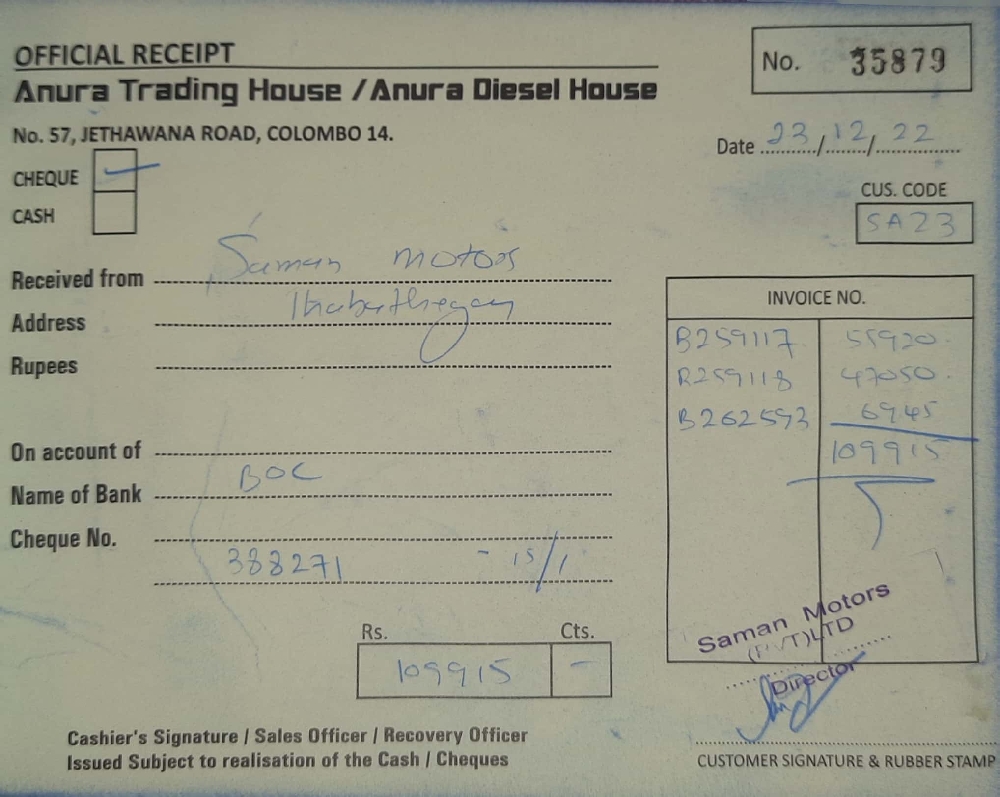 OFFICIAL RECEIPT
Anura Trading House / Anura Diesel House
No. 57, JETHAWANA ROAD, COLOMBO 14.
No. 35879
Date 23/12/22
CHEQUE
CASH
CUS. CODE
SA23
Received from Saman Motors
Address
Rupees
On account of
Name of Bank BOC
Cheque No.
388271 - 15/1
INVOICE NO.
B259117 55920.
B259118 47050.
B262593 6945
109915
Rs. Cts.
109915 -
Saman Motors
(PVT)LTD
Director
Cashier's Signature / Sales Officer / Recovery Officer
Issued Subject to realisation of the Cash / Cheques
CUSTOMER SIGNATURE & RUBBER STAMP